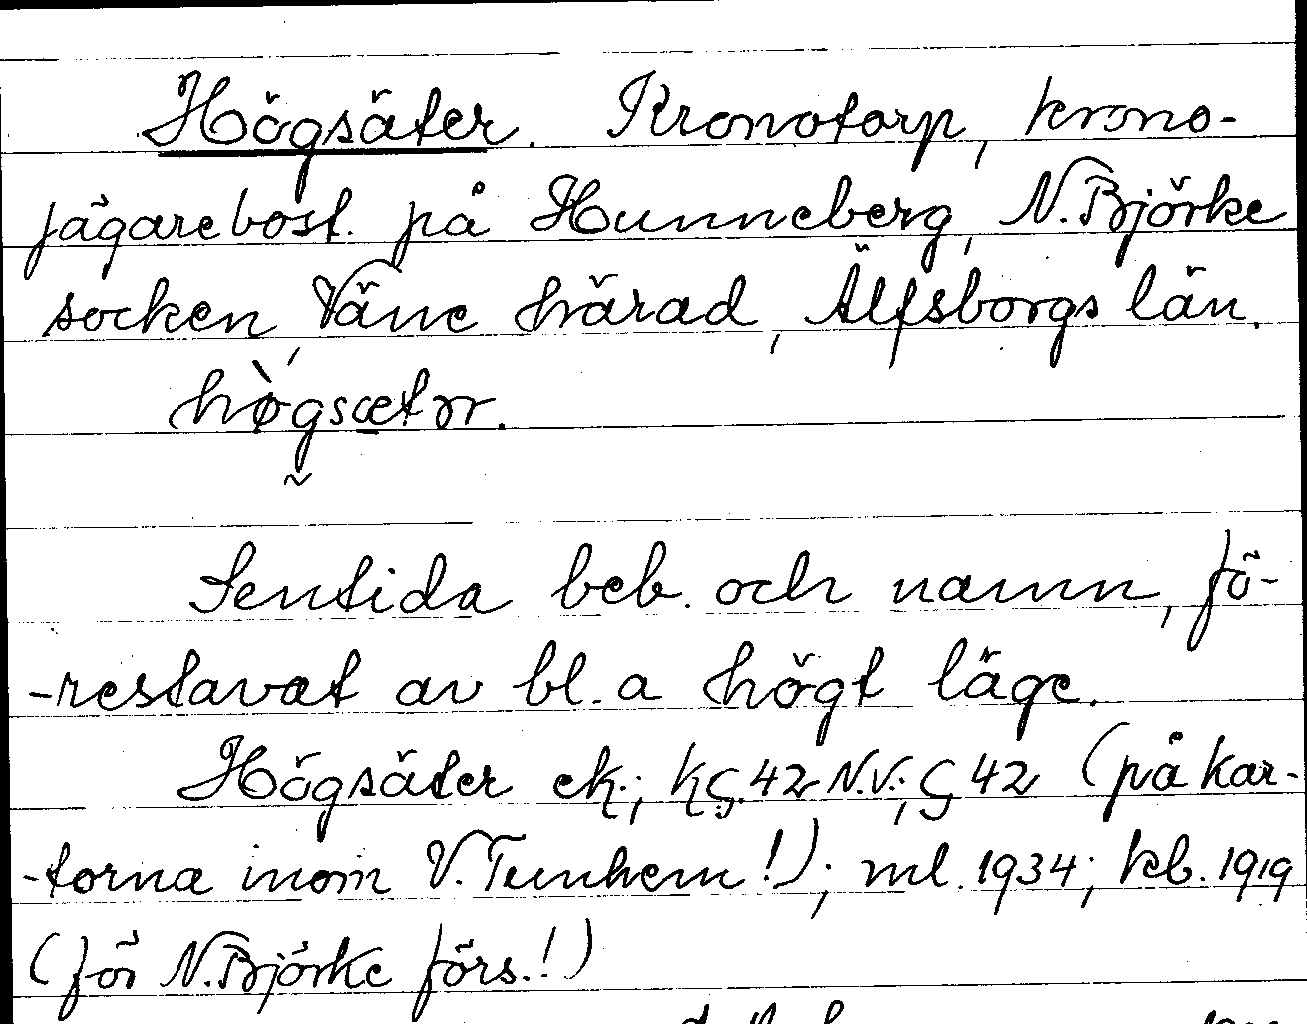 Högsäter. Kronotorp, krono-
jägarebost. på Hunneberg, N. Björke
socken, Väne härad, Älfsborgs län.
hø̀gsætər.
Sentida beb. och namn, fö-
-restavat av bl. a högt läge.
Högsäter ek.; kG. 42 N.V.; G 42 (på kar-
-torna inom V. Tunhem!); ml. 1934; kb. 1919
(för N. Björke förs.!)